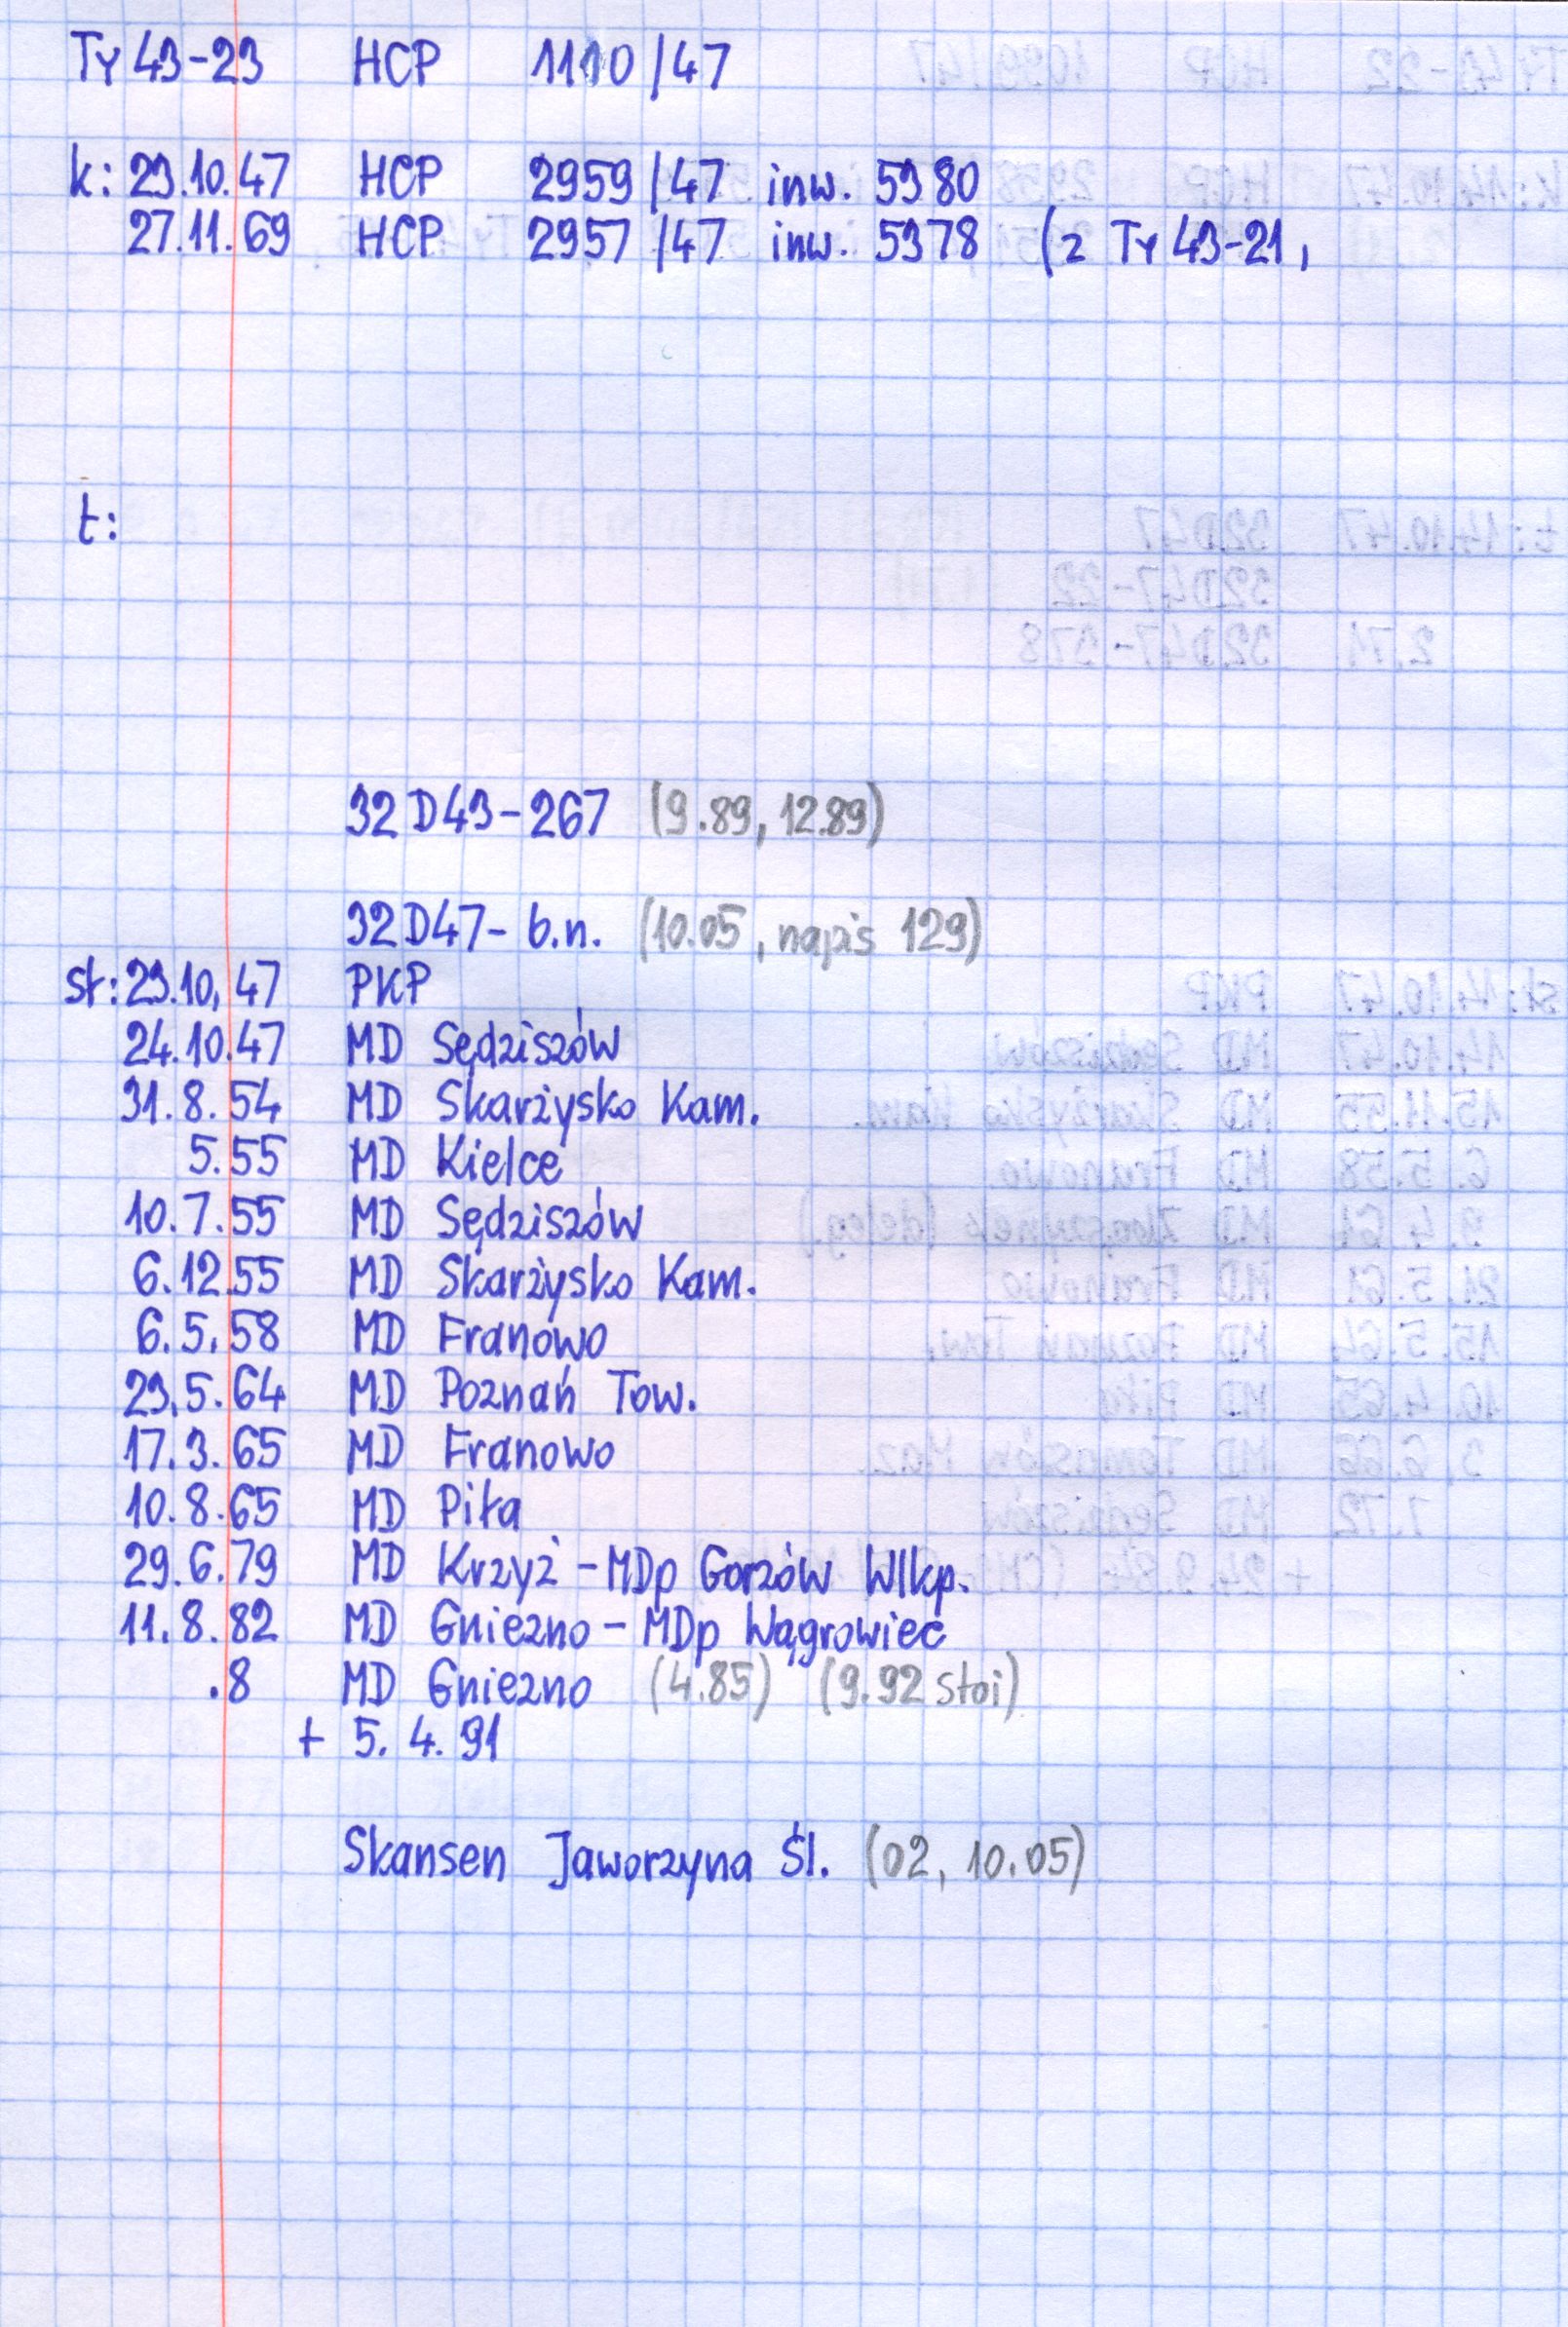 Ty 43-23 HCP 1110/47
k: 23.10.47 HCP 2959/47 inw. 5980
27.11.69 HCP 2957/47 inw. 5978 (z Ty 43-21,
t:
32D43-267 (9.89, 12.89)
32D47- b.n. (10.05, napis 129)
st: 23.10.47 PKP
24.10.47 MD Sędziszów
31.8.54 MD Skarżysko Kam.
5.55 MD Kielce
10.7.55 MD Sędziszów
6.12.55 MD Skarżysko Kam.
6.5.58 MD Franowo
23.5.64 MD Poznań Tow.
17.3.65 MD Franowo
10.8.65 MD Piła
29.6.79 MD Krzyż - MDp Gorzów Wlkp.
11.8.82 MD Gniezno - MDp Wągrowiec
.8 MD Gniezno (4.85) (9.92 stoi)
+ 5.4.91
Skansen Jaworzyna Śl. (02, 10.05)